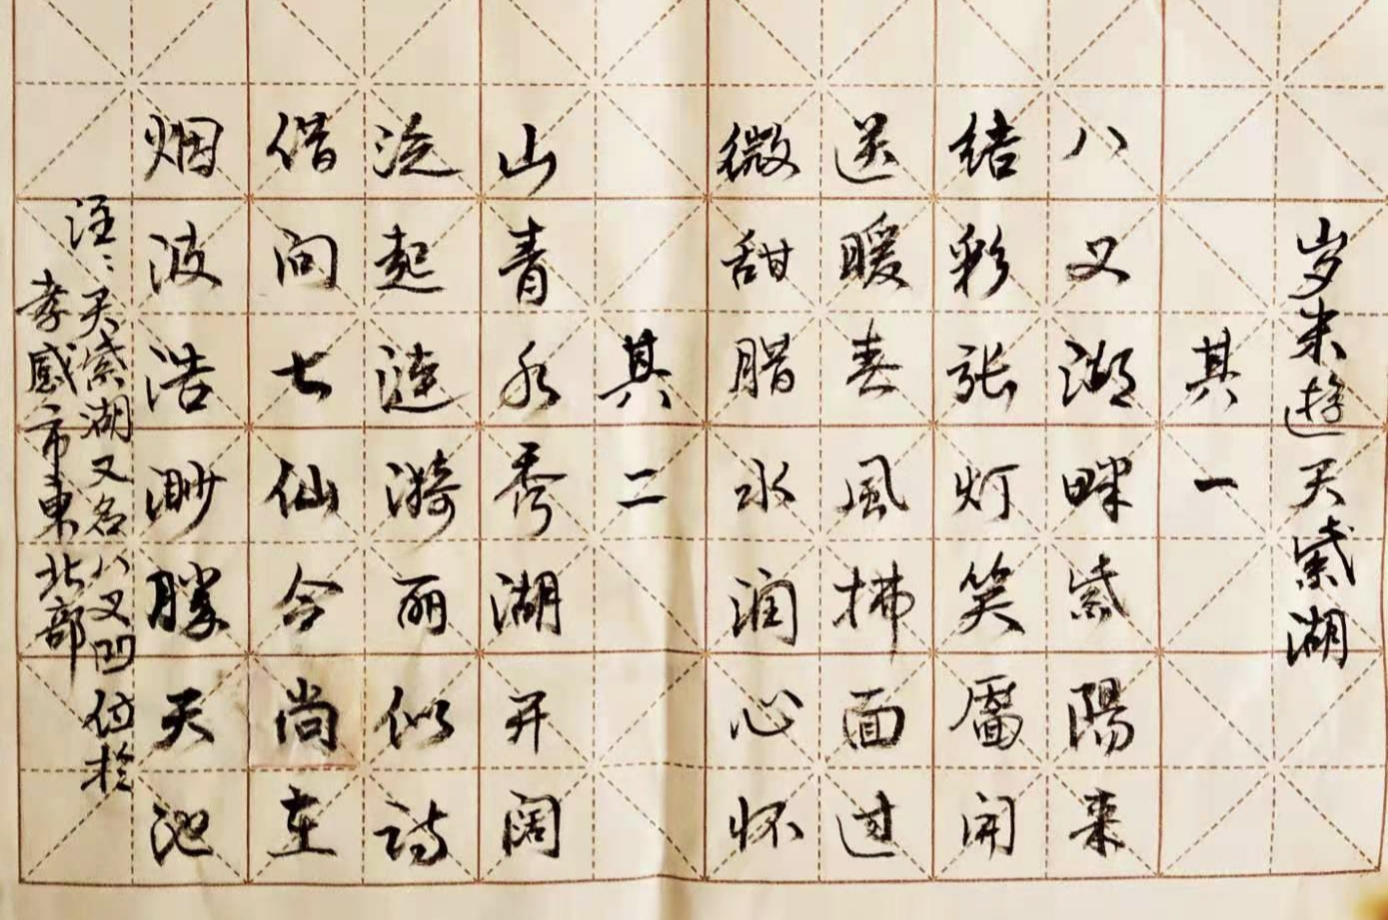 岁末遊天紫湖
其一
八又湖畔紫陽来
结彩张灯笑靥開
送暖春風拂面过
微甜腊水润心怀
其二
山青水秀湖开阔
泛起涟漪丽似诗
借问七仙今尚在
烟波浩渺勝天池
注：天紫湖又名八叉凹位於
孝感市東北部